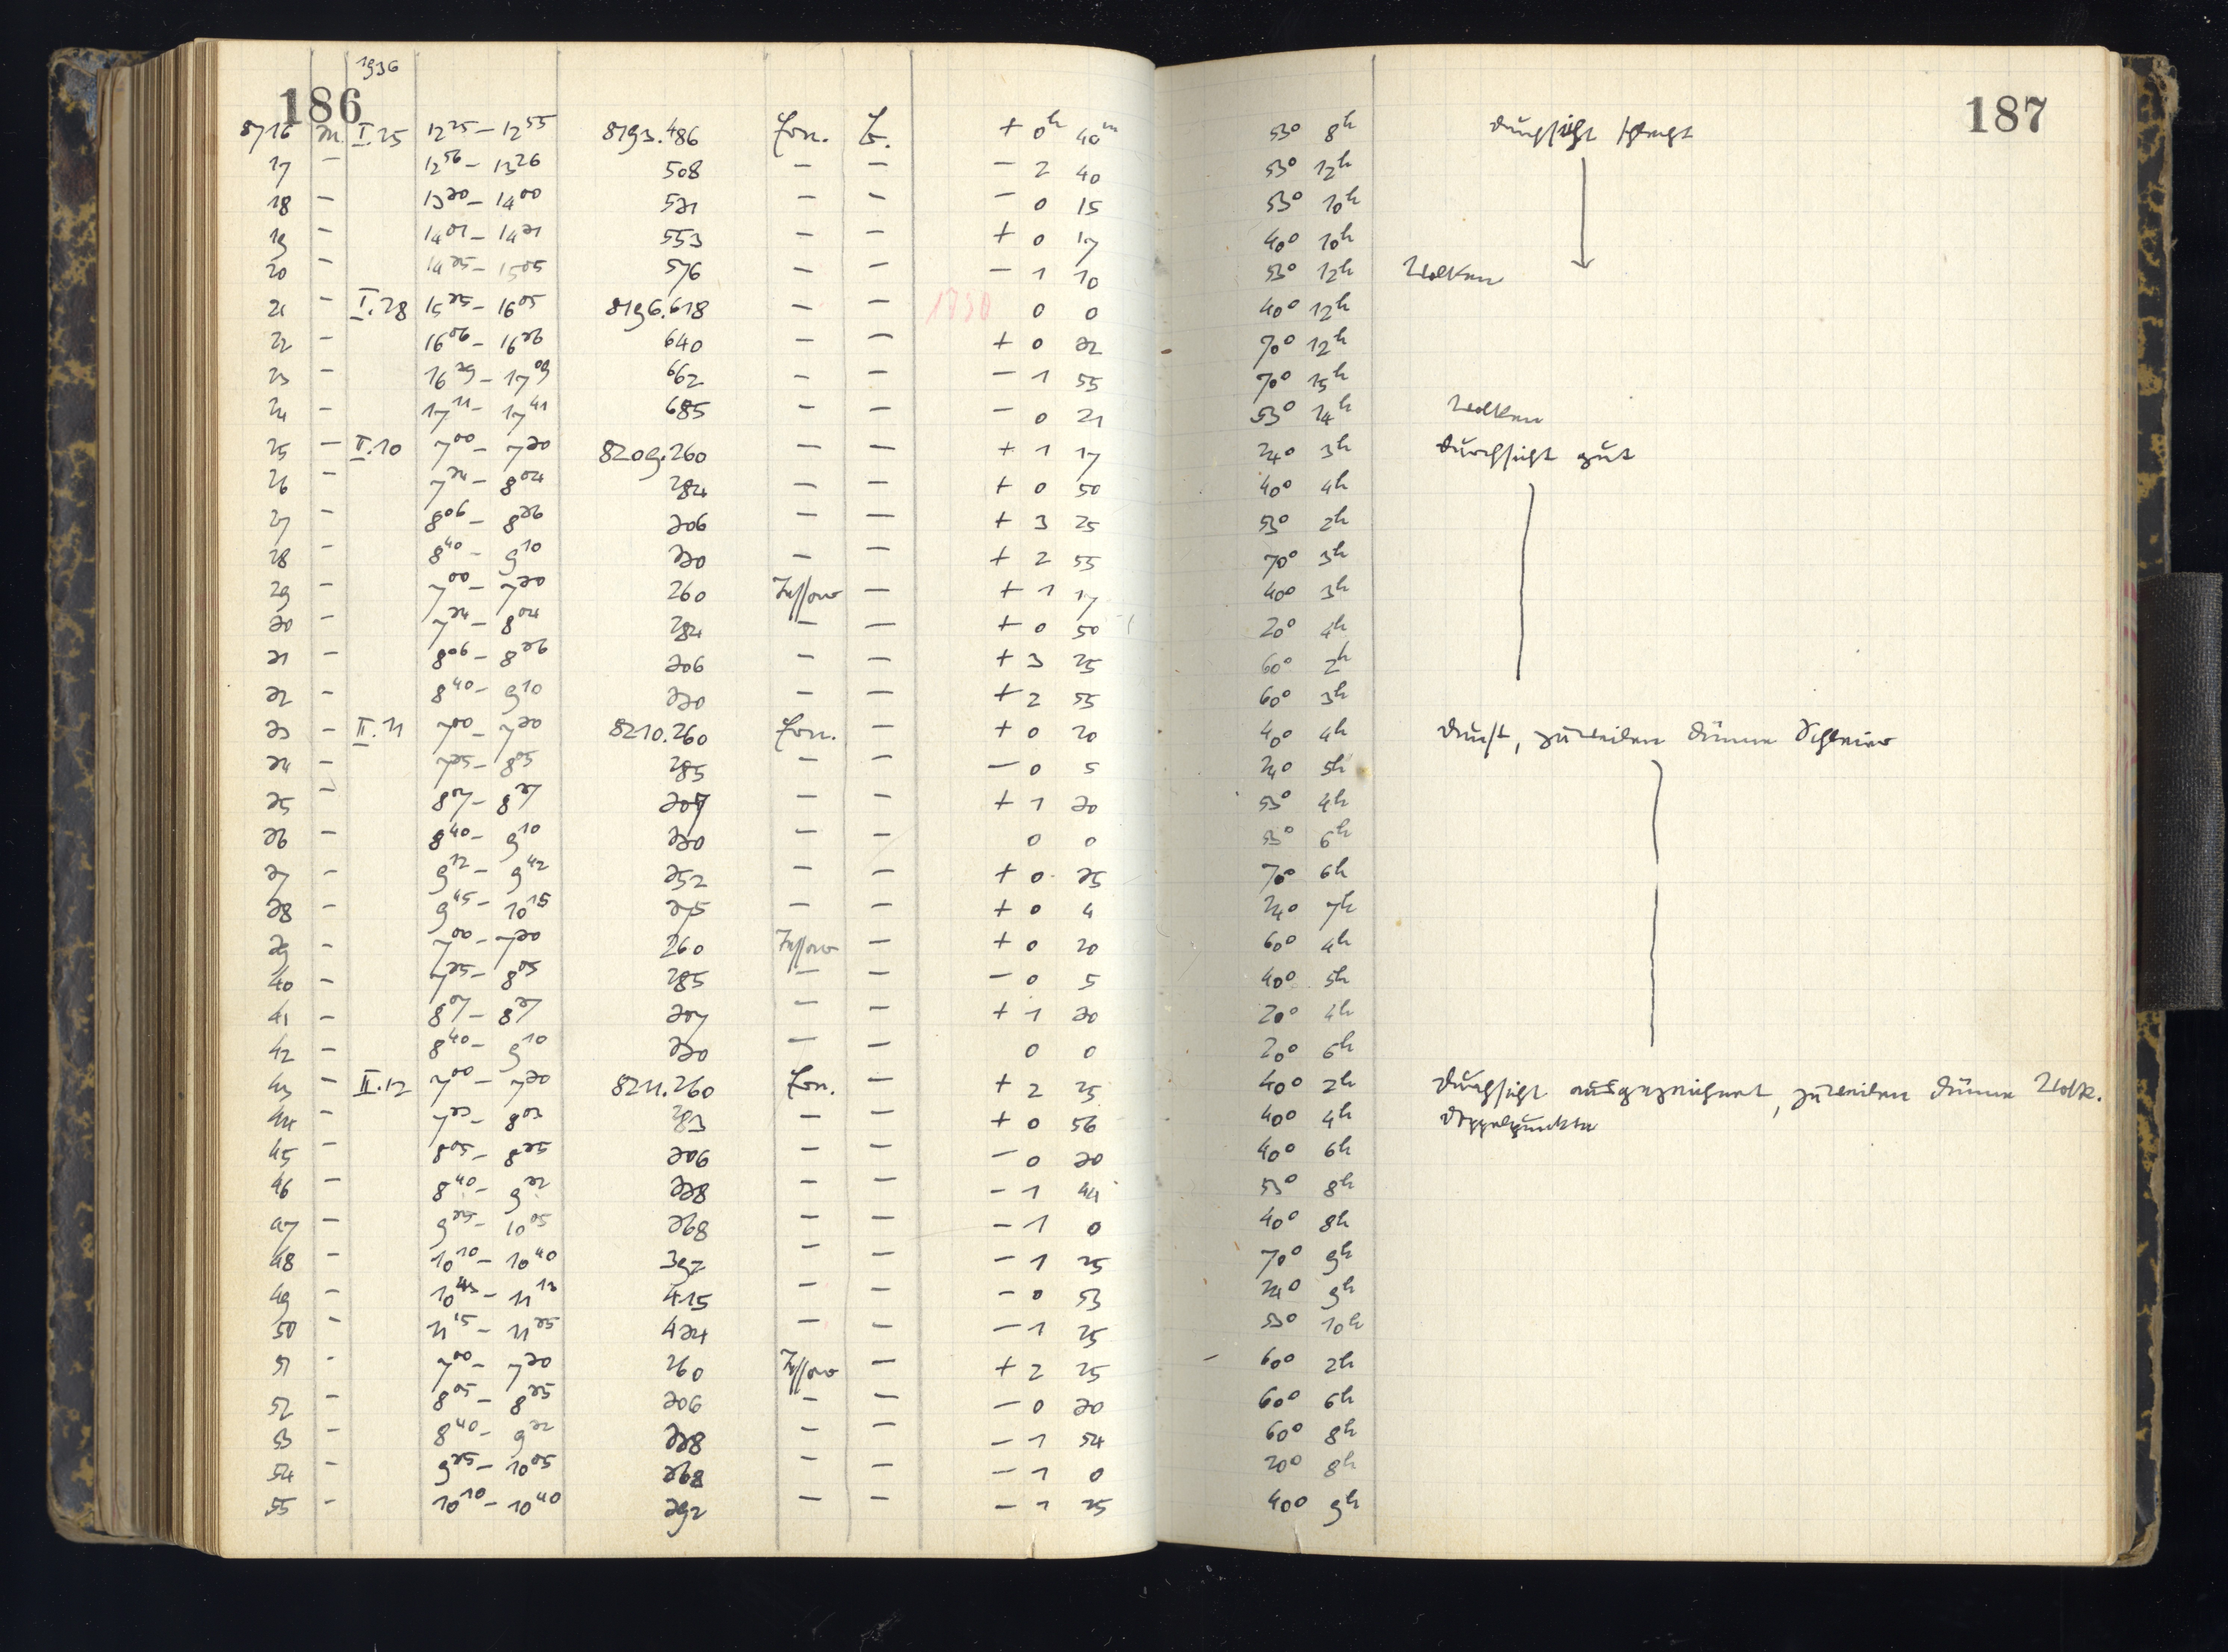 186 1936 187
8716 m. I.25 12 25 – 12 55 8193.486 Ern. E. + 0h 40m 53° 8h Durchsicht schlecht
17 – 12 56 – 13 26 508 – – – 2 40 53° 12h
18 – 13 30 – 14 00 531 – – – 0 15 53° 10h
19 – 14 01 – 14 31 553 – – + 0 17 40° 10h
20 – 14 35 – 15 05 576 – – – 1 10 53° 12h Wolken
21 – I.28 15 35 – 16 05 8196.618 – – 1730 0 0 40° 12h
22 – 16 06 – 16 36 640 – – + 0 32 70° 12h
23 – 16 39 – 17 09 662 – – – 1 55 70° 15h
24 – 17 11 – 17 41 685 – – – 0 21 53° 14h Wolken
25 – II.10 7 00 – 7 30 8209.260 – – + 1 17 24° 3h Durchsicht gut
26 – 7 34 – 8 04 284 – – + 0 50 40° 4h
27 – 8 06 – 8 36 306 – – + 3 25 53° 2h
28 – 8 40 – 9 10 330 – – + 2 55 70° 3h
29 – 7 00 – 7 30 260 Tessar – + 1 17 40° 3h
30 – 7 34 – 8 04 284 – – + 0 50 20° 4h
31 – 8 06 – 8 36 306 – – + 3 25 60° 2h
32 – 8 40 – 9 10 330 – – + 2 55 60° 3h
33 – II.11 7 00 – 7 30 8210.260 Ern. – + 0 20 40° 4h Dunst, zuweilen dünne Schleier
34 – 7 35 – 8 05 285 – – – 0 5 24° 5h
35 – 8 07 – 8 37 307 – – + 1 30 53° 4h
36 – 8 40 – 9 10 330 – – 0 0 53° 6h
37 – 9 12 – 9 42 352 – – + 0 35 70° 6h
38 – 9 45 – 10 15 375 – – + 0 4 24° 7h
39 – 7 00 – 7 30 260 Tessar – + 0 20 60° 4h
40 – 7 35 – 8 05 285 – – – 0 5 40° 5h
41 – 8 07 – 8 37 307 – – + 1 30 20° 4h
42 – 8 40 – 9 10 330 – – 0 0 20° 6h
43 – II.12 7 00 – 7 30 8211.260 Ern. – + 2 25 40° 2h Durchsicht ausgezeichnet, zuweilen dünne Wolk.
44 – 7 33 – 8 03 283 – – + 0 56 40° 4h Doppelpunkte
45 – 8 05 – 8 35 306 – – – 0 30 40° 6h
46 – 8 40 – 9 32 338 – – – 1 44 53° 8h
47 – 9 35 – 10 05 368 – – – 1 0 40° 8h
48 – 10 10 – 10 40 392 – – – 1 25 70° 9h
49 – 10 43 – 11 13 415 – – – 0 53 24° 9h
50 – 11 15 – 11 35 434 – – – 1 25 53° 10h
51 – 7 00 – 7 30 260 Tessar – + 2 25 60° 2h
52 – 8 05 – 8 35 306 – – – 0 30 60° 6h
53 – 8 40 – 9 32 338 – – – 1 54 60° 8h
54 – 9 35 – 10 05 368 – – – 1 0 20° 8h
55 – 10 10 – 10 40 392 – – – 1 25 40° 9h